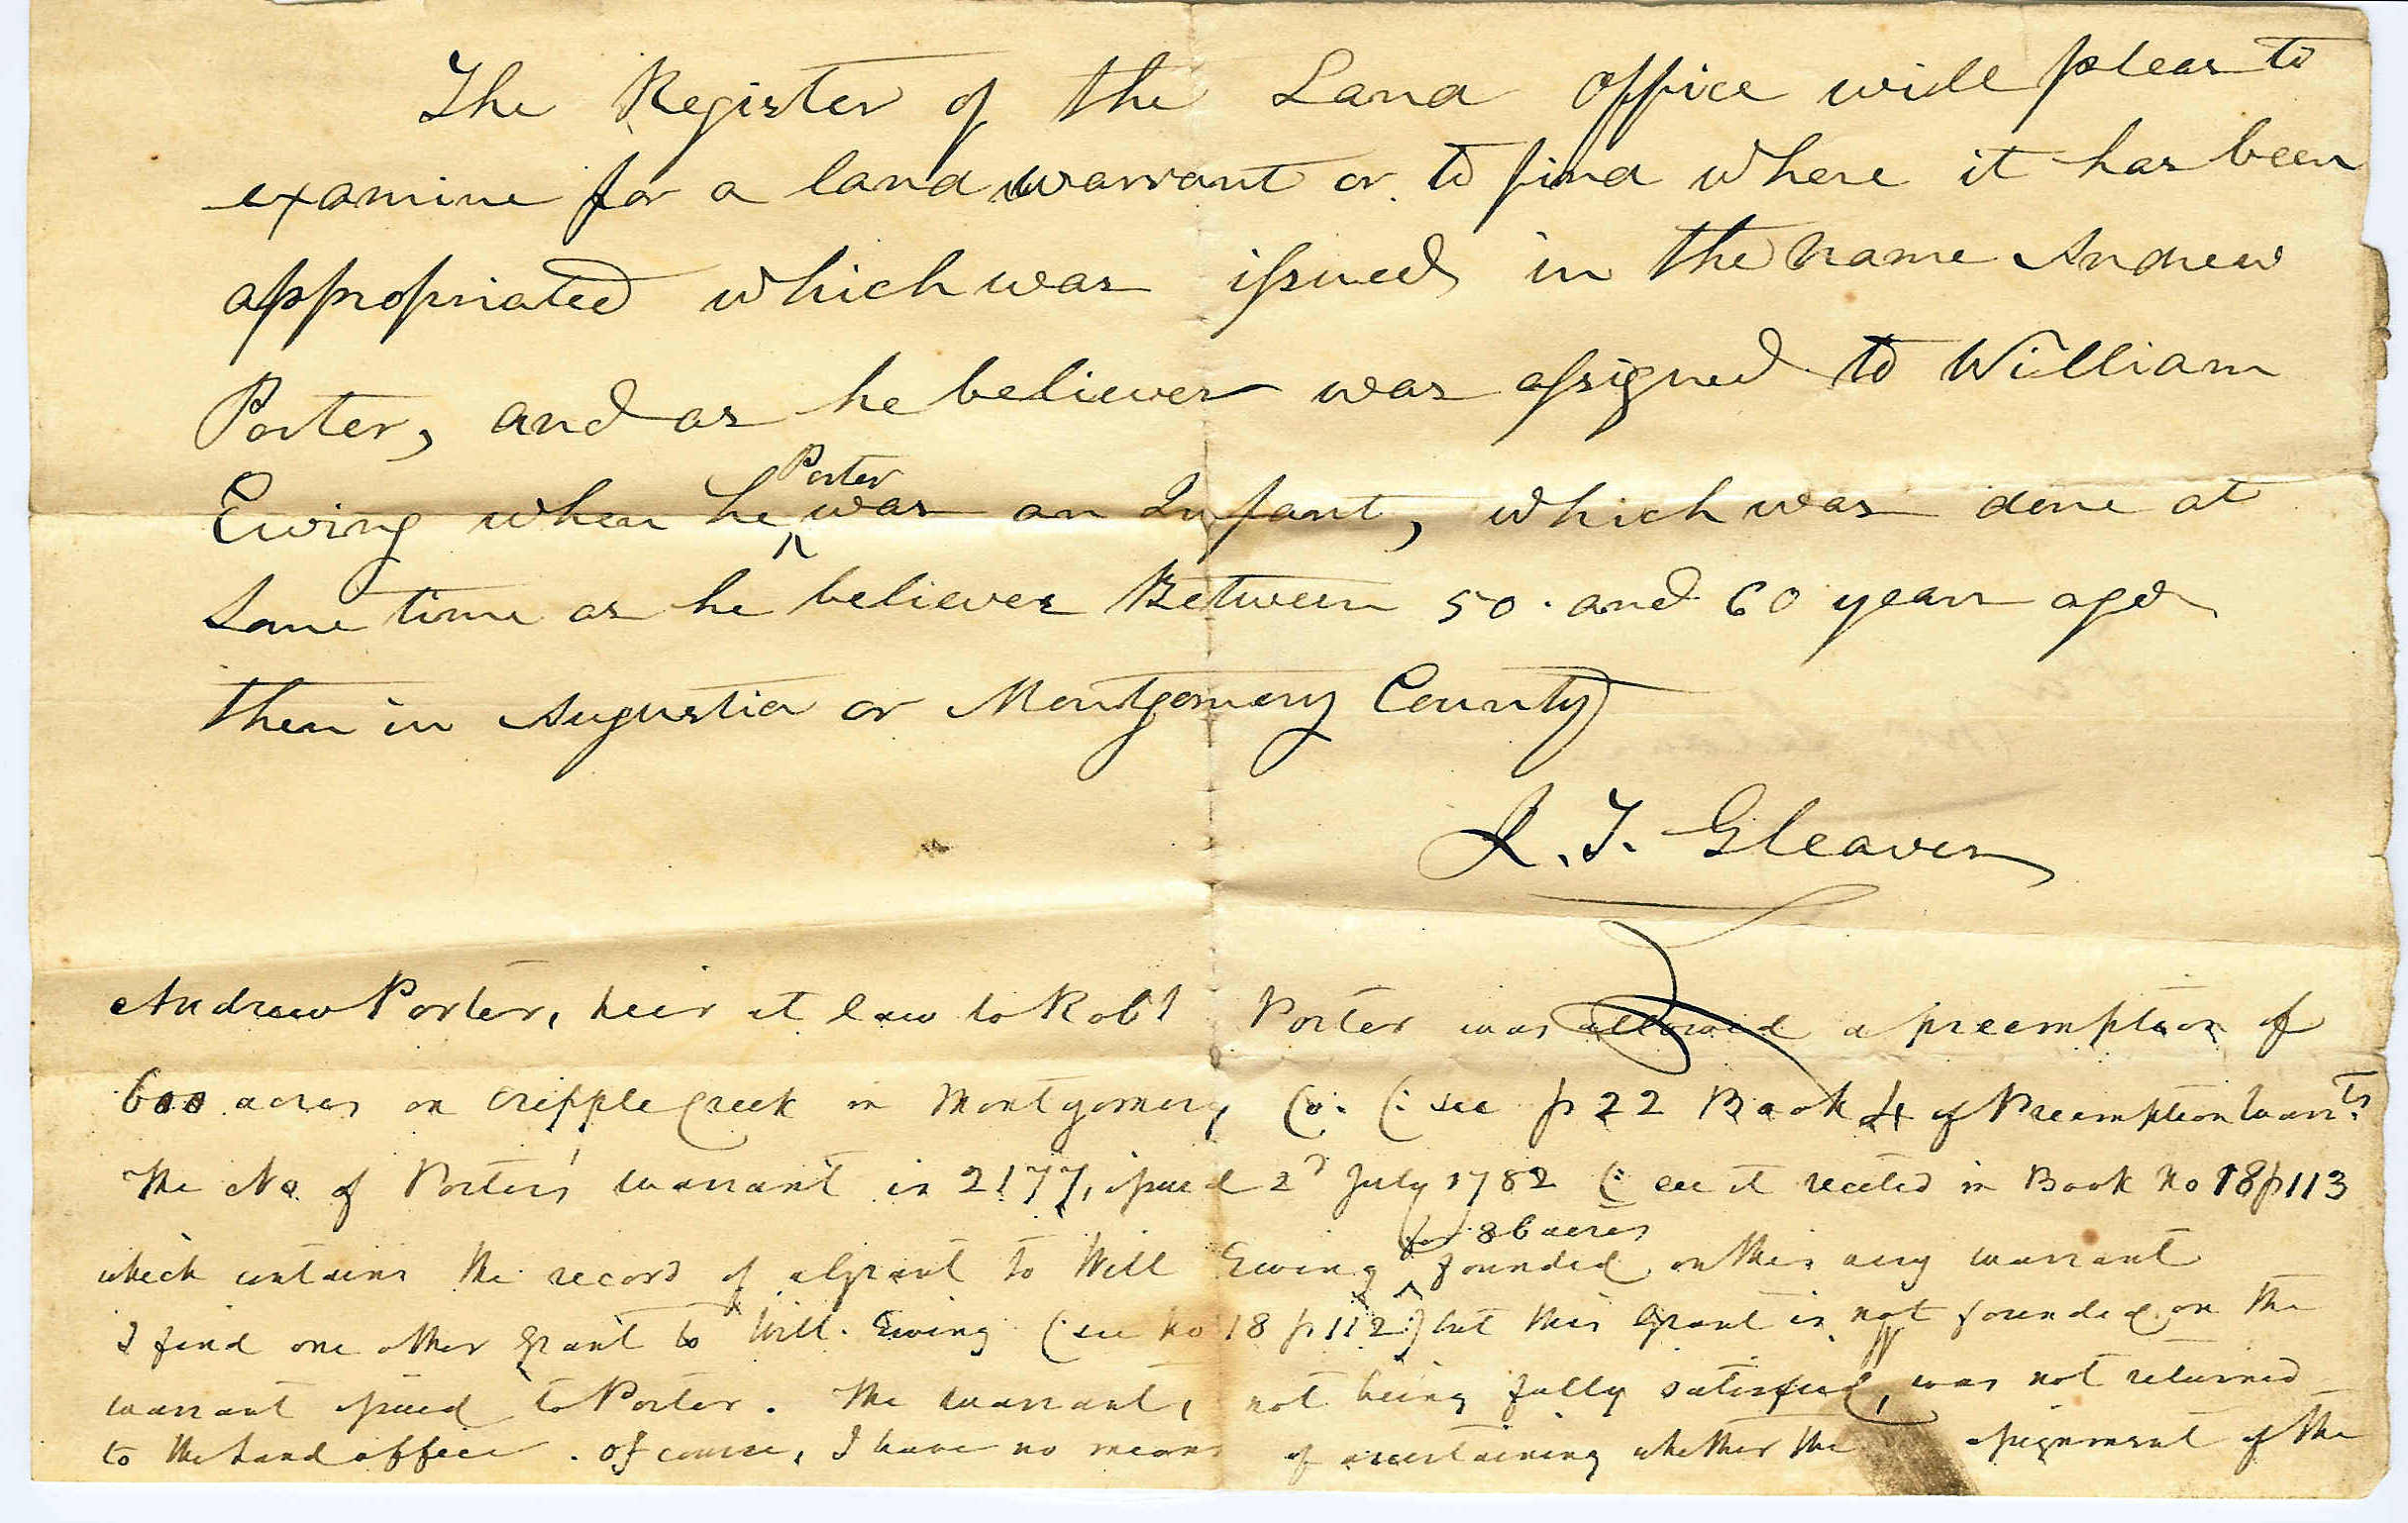 The Register of the Land office will pleas to
examine for a land warrant or to find where it has been
appropriated which was issued in the name Andrew
Porter, and as he believes was assigned to William
Ewing when he Porter was an Infant, which was done at
Some time as he believes Between 50 and 60 years ago
then in Augustia or Montgomery County
T. Gleaves
Andrew Porter, heir at law to Robt Porter was allowed a preemption of
600 acres on Cripple Creek in Montgomery Co. (: see p 22 Book 4 of Preemption Warrts
The No of Porter's warrant is 2177, issued 2d July 1782 (: see it recited in Book No 18 p 113
which contains the record of a Grant to Will Ewing for 86 acres founded on this very warrant
I find one other Grant to Will. Ewing (: see No 18 p 112 :) but this Grant is not founded on the
warrant issued to Porter. The warrant, not being fully satisfied, was not returned
to the Land office. Of course, I have no means of ascertaining whether the assignment of the